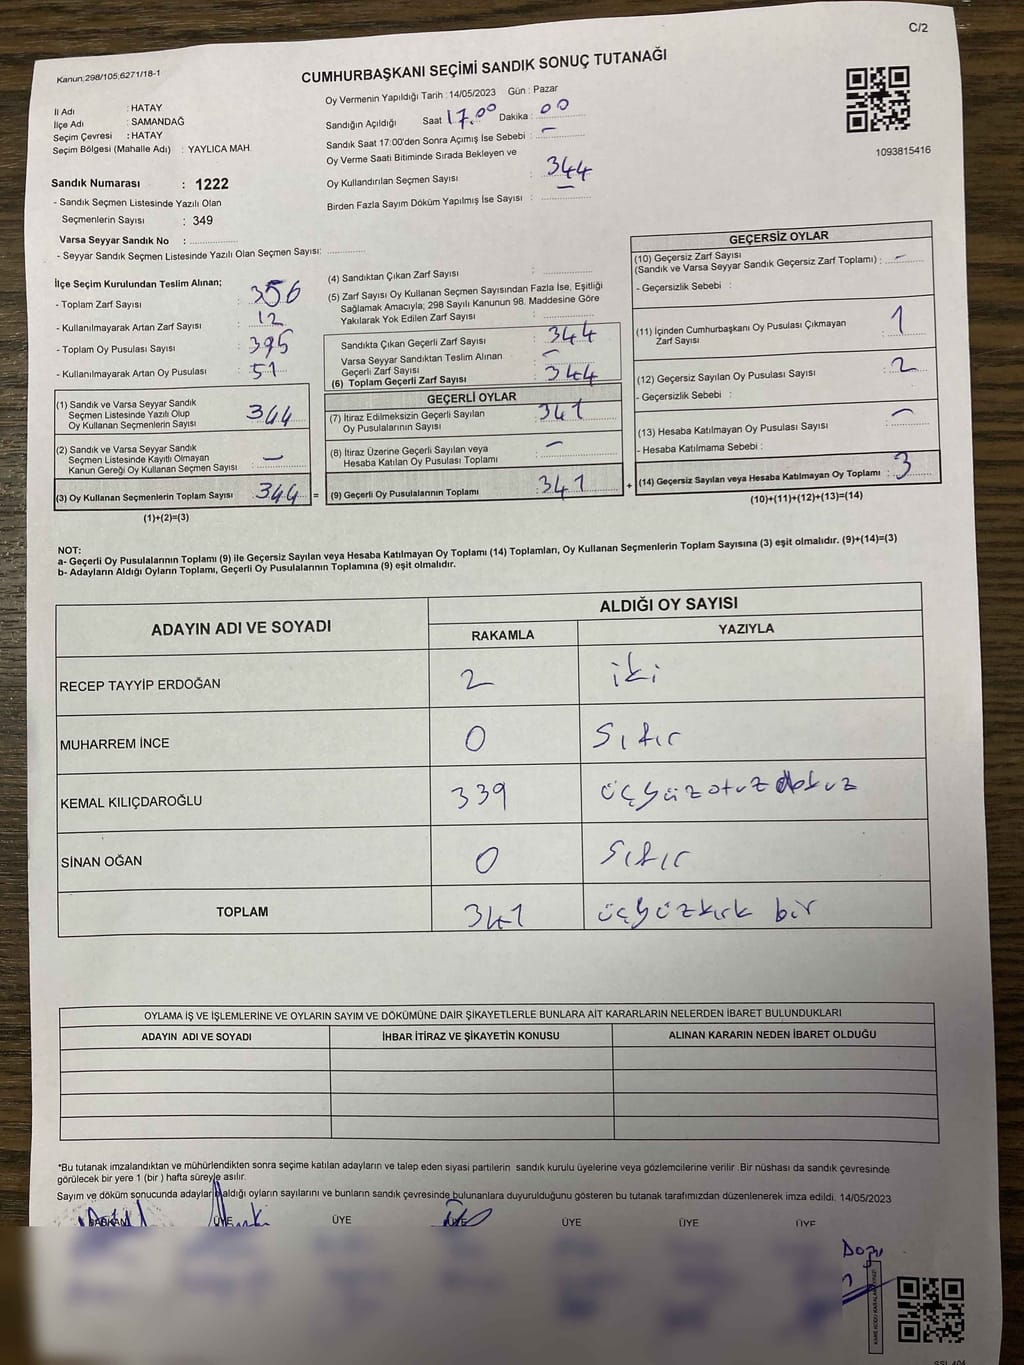 C/2
Kanun:298/105;6271/18-1
CUMHURBAŞKANI SEÇİMİ SANDIK SONUÇ TUTANAĞI
1093815416
İl Adı : HATAY
İlçe Adı : SAMANDAĞ
Seçim Çevresi : HATAY
Seçim Bölgesi (Mahalle Adı) : YAYLICA MAH.
Oy Vermenin Yapıldığı Tarih : 14/05/2023 Gün : Pazar
Sandığın Açıldığı Saat 17.00 Dakika : 00
Sandık Saat 17:00'den Sonra Açımış İse Sebebi : -
Oy Verme Saati Bitiminde Sırada Bekleyen ve
Oy Kullandırılan Seçmen Sayısı : 344
Birden Fazla Sayım Döküm Yapılmış İse Sayısı : -
Sandık Numarası : 1222
- Sandık Seçmen Listesinde Yazılı Olan
Seçmenlerin Sayısı : 349
Varsa Seyyar Sandık No :
- Seyyar Sandık Seçmen Listesinde Yazılı Olan Seçmen Sayısı:
İlçe Seçim Kurulundan Teslim Alınan;
- Toplam Zarf Sayısı : 356
- Kullanılmayarak Artan Zarf Sayısı : 12
- Toplam Oy Pusulası Sayısı : 395
- Kullanılmayarak Artan Oy Pusulası : 51
(1) Sandık ve Varsa Seyyar Sandık
Seçmen Listesinde Yazılı Olup
Oy Kullanan Seçmenlerin Sayısı : 344
(2) Sandık ve Varsa Seyyar Sandık
Seçmen Listesinde Kayıtlı Olmayan
Kanun Gereği Oy Kullanan Seçmen Sayısı : -
(3) Oy Kullanan Seçmenlerin Toplam Sayısı : 344 =
(1)+(2)=(3)
(4) Sandıktan Çıkan Zarf Sayısı :
(5) Zarf Sayısı Oy Kullanan Seçmen Sayısından Fazla İse, Eşitliği
Sağlamak Amacıyla; 298 Sayılı Kanunun 98. Maddesine Göre
Yakılarak Yok Edilen Zarf Sayısı :
Sandıkta Çıkan Geçerli Zarf Sayısı : 344
Varsa Seyyar Sandıktan Teslim Alınan
Geçerli Zarf Sayısı : -
(6) Toplam Geçerli Zarf Sayısı : 344
GEÇERLİ OYLAR
(7) İtiraz Edilmeksizin Geçerli Sayılan
Oy Pusulalarının Sayısı : 341
(8) İtiraz Üzerine Geçerli Sayılan veya
Hesaba Katılan Oy Pusulası Toplamı : -
(9) Geçerli Oy Pusulalarının Toplamı : 341 +
GEÇERSİZ OYLAR
(10) Geçersiz Zarf Sayısı
(Sandık ve Varsa Seyyar Sandık Geçersiz Zarf Toplamı) : -
- Geçersizlik Sebebi :
(11) İçinden Cumhurbaşkanı Oy Pusulası Çıkmayan
Zarf Sayısı : 1
(12) Geçersiz Sayılan Oy Pusulası Sayısı : 2
- Geçersizlik Sebebi :
(13) Hesaba Katılmayan Oy Pusulası Sayısı : -
- Hesaba Katılmama Sebebi :
(14) Geçersiz Sayılan veya Hesaba Katılmayan Oy Toplamı : 3
(10)+(11)+(12)+(13)=(14)
NOT:
a- Geçerli Oy Pusulalarının Toplamı (9) ile Geçersiz Sayılan veya Hesaba Katılmayan Oy Toplamı (14) Toplamları, Oy Kullanan Seçmenlerin Toplam Sayısına (3) eşit olmalıdır. (9)+(14)=(3)
b- Adayların Aldığı Oyların Toplamı, Geçerli Oy Pusulalarının Toplamına (9) eşit olmalıdır.
ADAYIN ADI VE SOYADI ALDIĞI OY SAYISI
RAKAMLA YAZIYLA
RECEP TAYYİP ERDOĞAN 2 iki
MUHARREM İNCE 0 Sıfır
KEMAL KILIÇDAROĞLU 339 üçyüzotuzdokuz
SİNAN OĞAN 0 Sıfır
TOPLAM 341 üçyüzkırk bir
OYLAMA İŞ VE İŞLEMLERİNE VE OYLARIN SAYIM VE DÖKÜMÜNE DAİR ŞİKAYETLERLE BUNLARA AİT KARARLARIN NELERDEN İBARET BULUNDUKLARI
ADAYIN ADI VE SOYADI İHBAR İTİRAZ VE ŞİKAYETİN KONUSU ALINAN KARARIN NEDEN İBARET OLDUĞU
*Bu tutanak imzalandıktan ve mühürlendikten sonra seçime katılan adayların ve talep eden siyasi partilerin sandık kurulu üyelerine veya gözlemcilerine verilir .Bir nüshası da sandık çevresinde
görülecek bir yere 1 (bir ) hafta süreyle asılır.
Sayım ve döküm sonucunda adayların aldığı oyların sayılarını ve bunların sandık çevresinde bulunanlara duyurulduğunu gösteren bu tutanak tarafımızdan düzenlenerek imza edildi. 14/05/2023
BAŞKAN ÜYE ÜYE ÜYE ÜYE ÜYE ÜYE